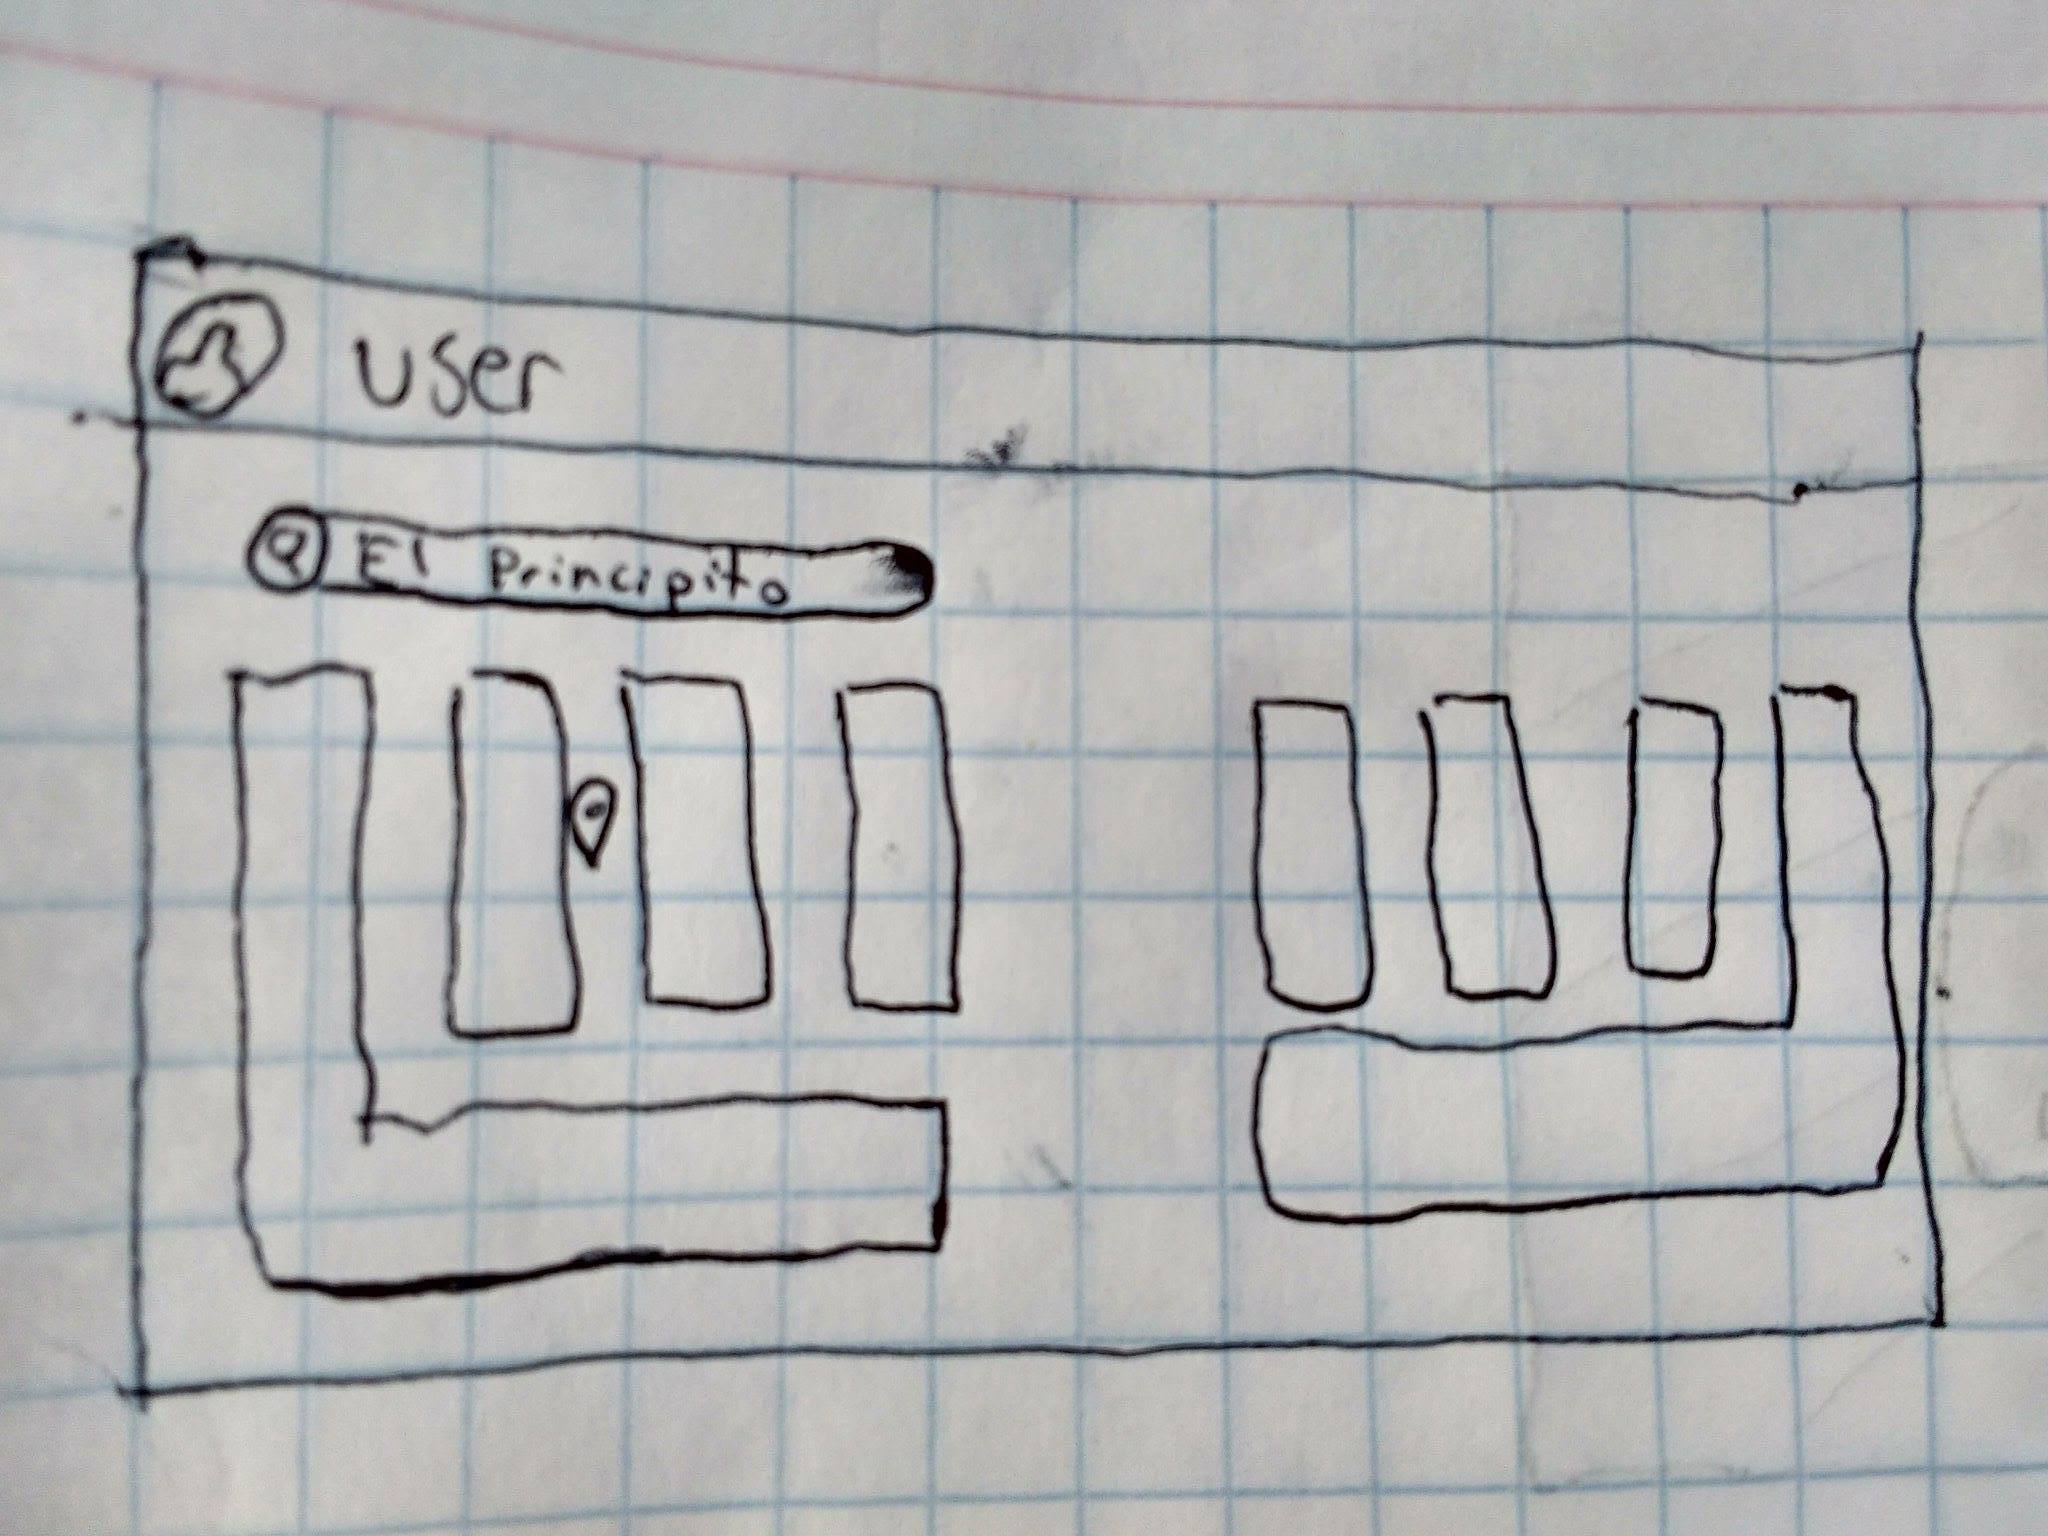 user
El principito